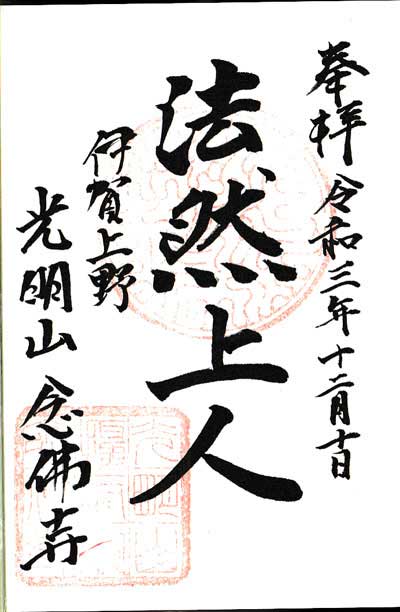 奉拝 令和三年十二月十日
法然上人
伊賀上野
光明山 念佛寺